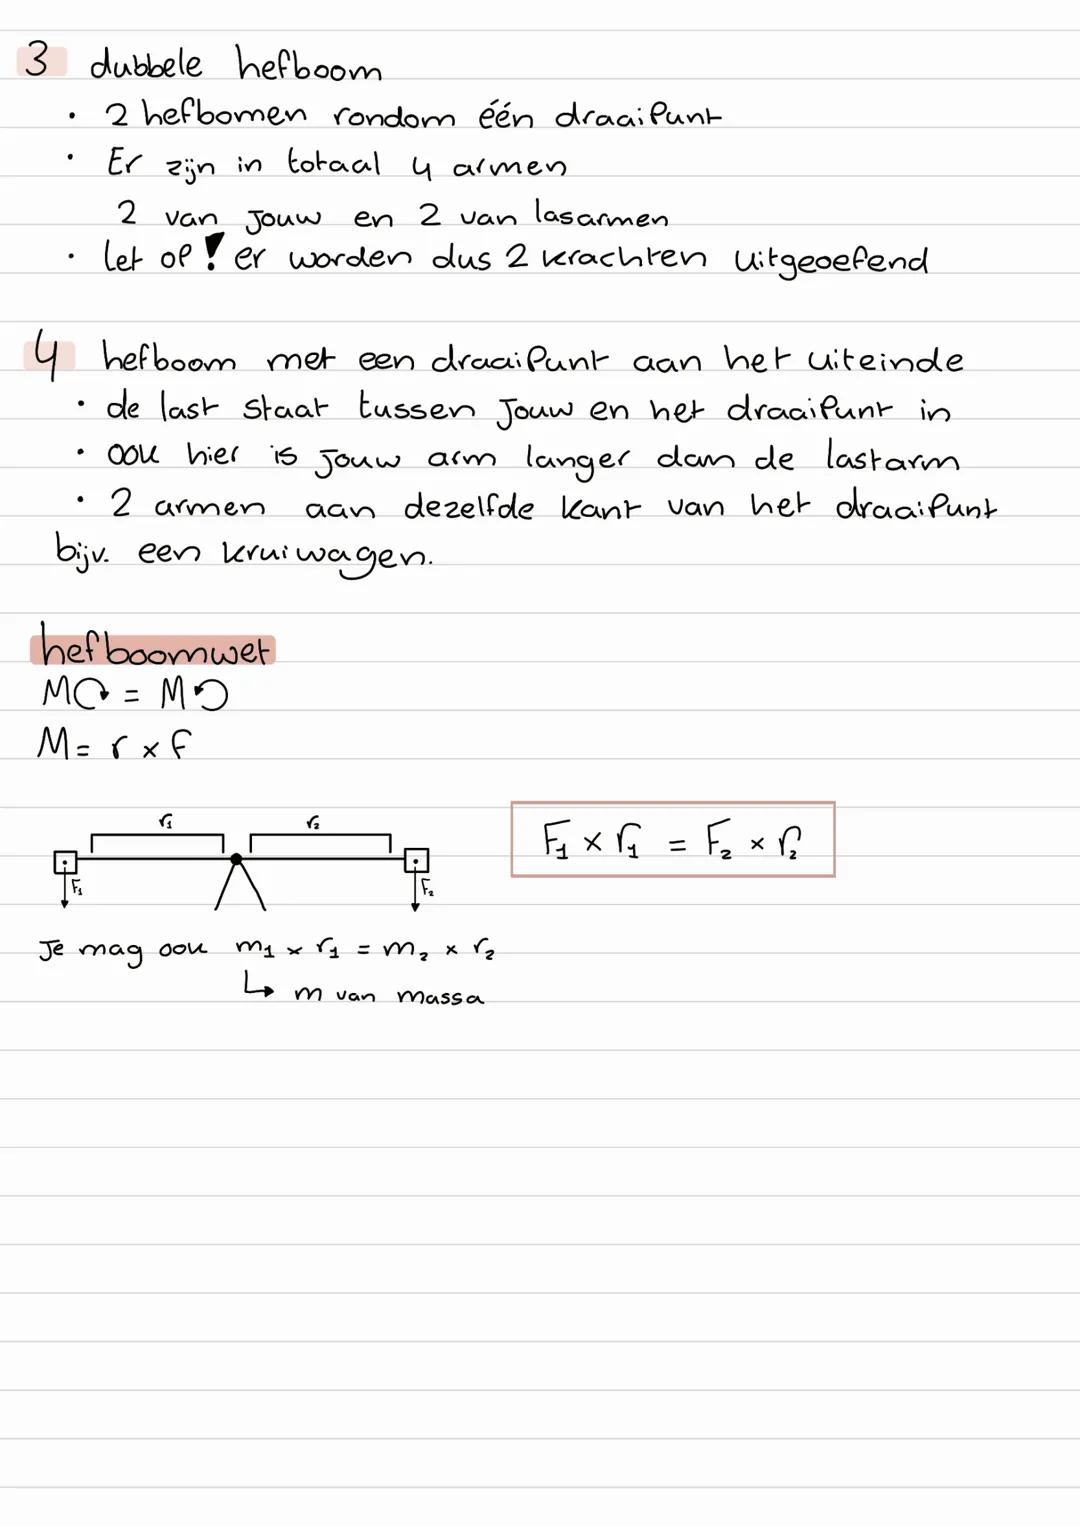 3 dubbele hefboom
· 2 hefbomen rondom één draaipunt
· Er zijn in totaal 4 armen
2 van jouw en 2 van lasarmen
· let op! er worden dus 2 krachten uitgeoefend
4 hefboom met een draaipunt aan het uiteinde
· de last staat tussen jouw en het draaipunt in
· ook hier is jouw arm langer dan de lastarm
· 2 armen aan dezelfde kant van het draaipunt
bijv. een kruiwagen.
hefboomwet
M↻ = M↺
M = r × f
r₁ r₂
F₁ × r₁ = F₂ × r₂
F₁ F₂
Je mag ook m₁ × r₁ = m₂ × r₂
↳ m van massa